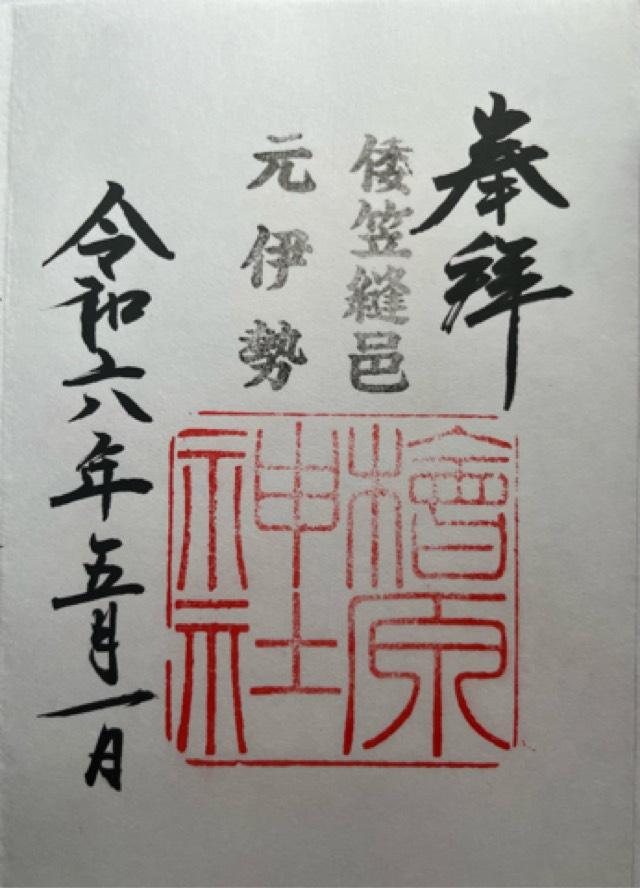 奉拝
倭笠縫邑
元伊勢
檜原
神社
令和六年五月一日